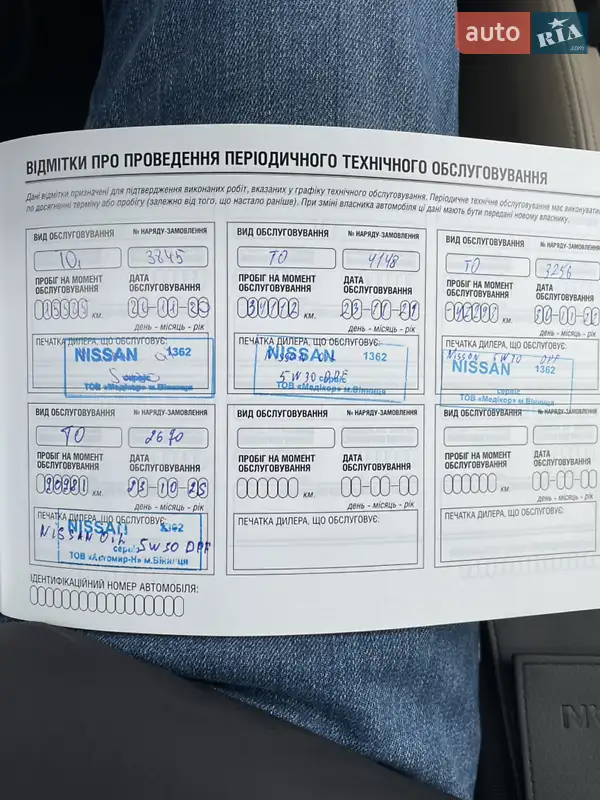 auto RIA.com
ВІДМІТКИ ПРО ПРОВЕДЕННЯ ПЕРІОДИЧНОГО ТЕХНІЧНОГО ОБСЛУГОВУВАННЯ
Дані відмітки призначені для підтвердження виконаних робіт, вказаних у графіку технічного обслуговування. Періодичне технічне обслуговування має виконувати
по досягненні терміну або пробігу (залежно від того, що настало раніше). При зміні власника автомобіля ці дані мають бути передані новому власнику.
ВИД ОБСЛУГОВУВАННЯ № НАРЯДУ-ЗАМОВЛЕННЯ
3845
ПРОБІГ НА МОМЕНТ ОБСЛУГОВУВАННЯ ДАТА ОБСЛУГОВУВАННЯ
КМ.
день - місяць - рік
ПЕЧАТКА ДИЛЕРА, ЩО ОБСЛУГОВУЄ:
NISSAN 1362
сервіс
ТОВ «Медікор» м.Вінниця
ВИД ОБСЛУГОВУВАННЯ № НАРЯДУ-ЗАМОВЛЕННЯ
ТО 4148
ПРОБІГ НА МОМЕНТ ОБСЛУГОВУВАННЯ ДАТА ОБСЛУГОВУВАННЯ
КМ.
день - місяць - рік
ПЕЧАТКА ДИЛЕРА, ЩО ОБСЛУГОВУЄ:
NISSAN 1362
5W30 DPF
сервіс
ТОВ «Медікор» м.Вінниця
ВИД ОБСЛУГОВУВАННЯ № НАРЯДУ-ЗАМОВЛЕННЯ
ТО 3256
ПРОБІГ НА МОМЕНТ ОБСЛУГОВУВАННЯ ДАТА ОБСЛУГОВУВАННЯ
КМ.
день - місяць - рік
ПЕЧАТКА ДИЛЕРА, ЩО ОБСЛУГОВУЄ:
Nissan 5W30 DPF
NISSAN 1362
сервіс
ТОВ «Медікор» м.Вінниця
ВИД ОБСЛУГОВУВАННЯ № НАРЯДУ-ЗАМОВЛЕННЯ
ТО 2670
ПРОБІГ НА МОМЕНТ ОБСЛУГОВУВАННЯ ДАТА ОБСЛУГОВУВАННЯ
КМ. 23-10-25
день - місяць - рік
ПЕЧАТКА ДИЛЕРА, ЩО ОБСЛУГОВУЄ:
NISSAN 1362
NISSAN OIL 5W30 DPF
сервіс
ТОВ «Автомир-Н» м.Вінниця
ВИД ОБСЛУГОВУВАННЯ № НАРЯДУ-ЗАМОВЛЕННЯ
ПРОБІГ НА МОМЕНТ ОБСЛУГОВУВАННЯ ДАТА ОБСЛУГОВУВАННЯ
КМ.
день - місяць - рік
ПЕЧАТКА ДИЛЕРА, ЩО ОБСЛУГОВУЄ:
ВИД ОБСЛУГОВУВАННЯ № НАРЯДУ-ЗАМОВЛЕННЯ
ПРОБІГ НА МОМЕНТ ОБСЛУГОВУВАННЯ ДАТА ОБСЛУГОВУВАННЯ
КМ.
день - місяць - рік
ПЕЧАТКА ДИЛЕРА, ЩО ОБСЛУГОВУЄ:
ІДЕНТИФІКАЦІЙНИЙ НОМЕР АВТОМОБІЛЯ: